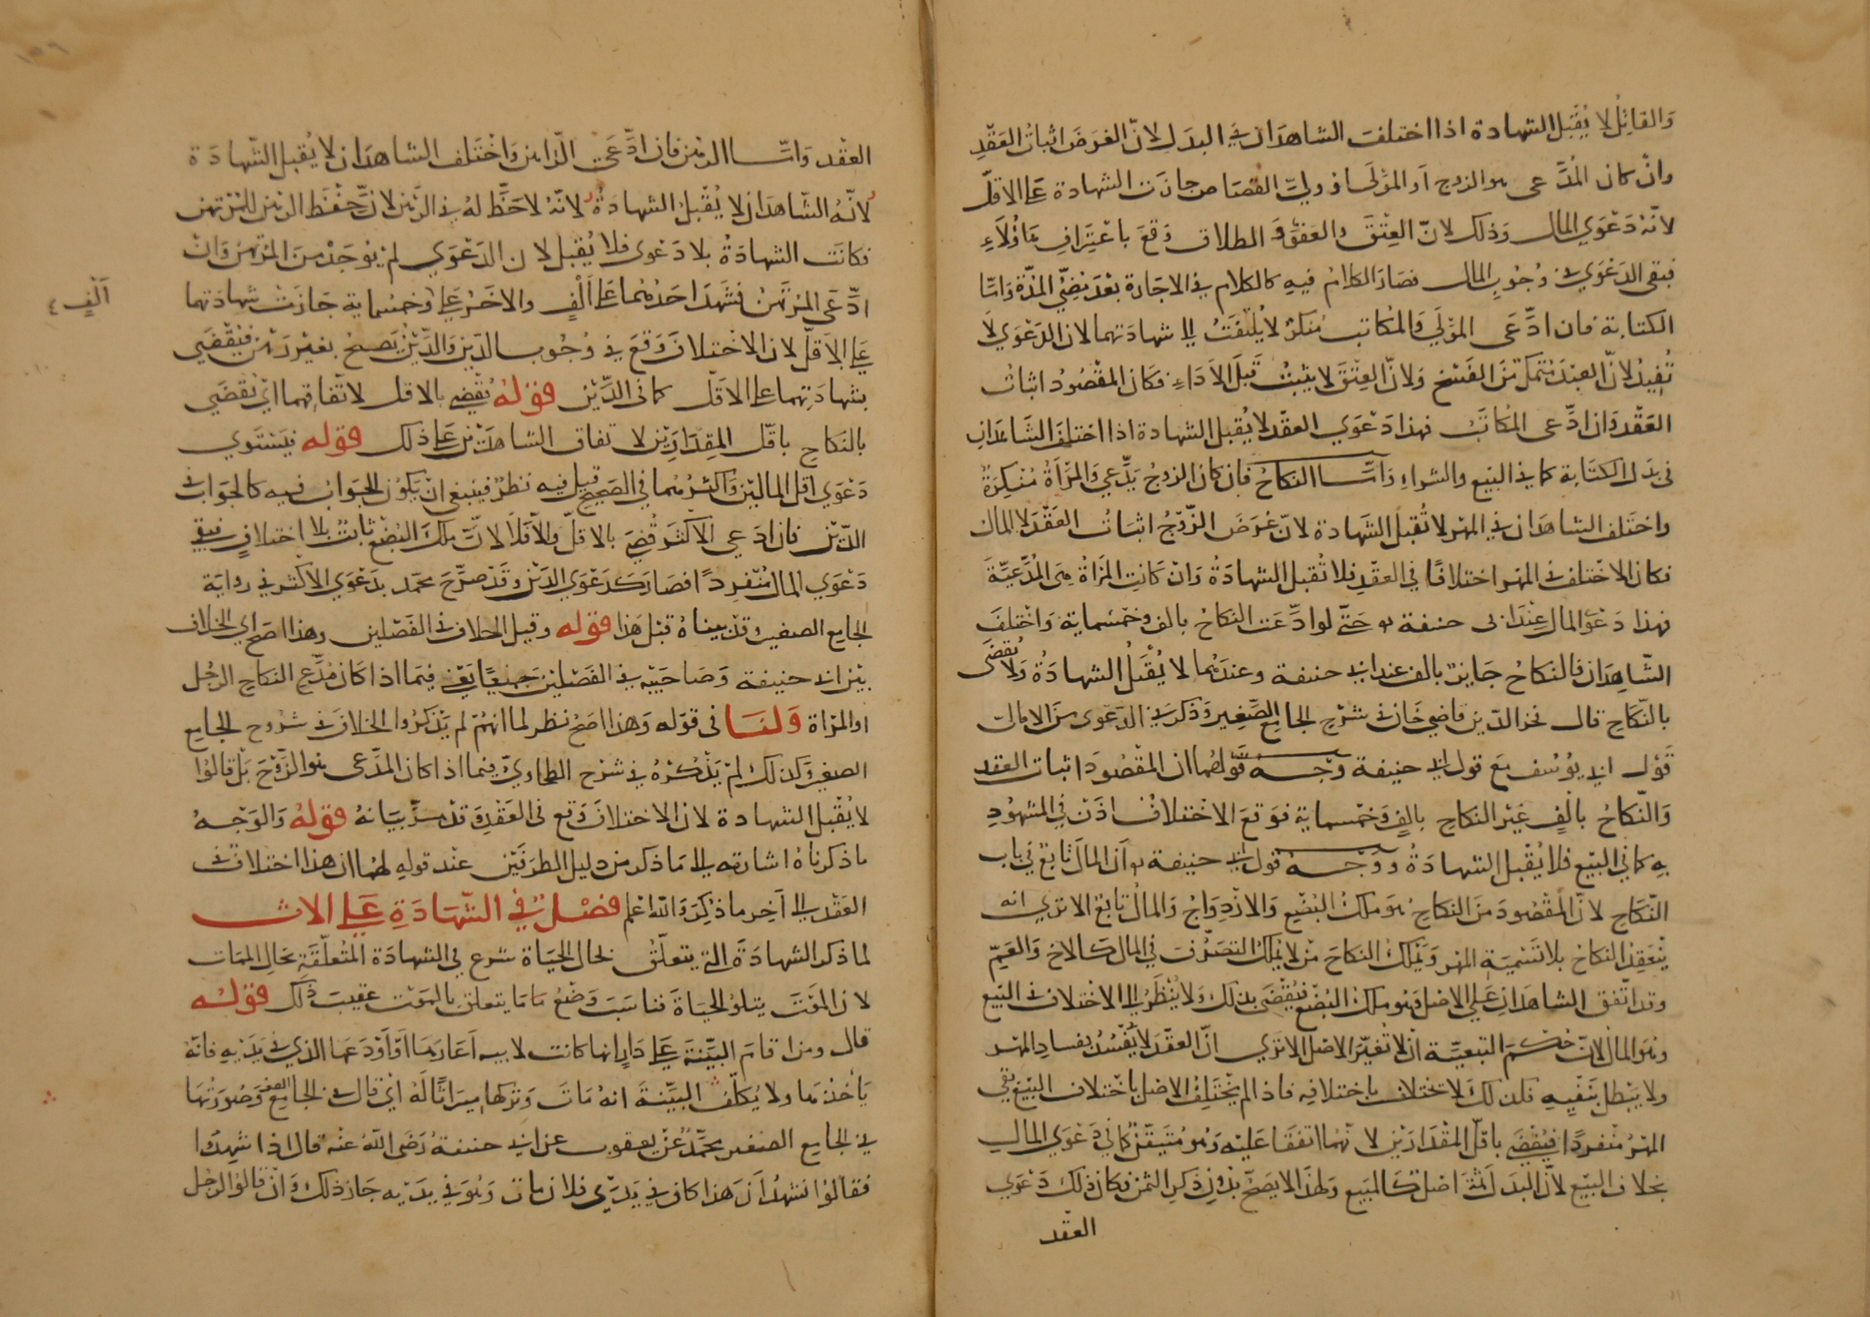 والقائل لا يقبل الشهادة اذا اختلف الشاهدان في البدل لان الغرض اثبات العقد
وان كان المدعي هو الزوج او المولى او ولي القصاص جازت الشهادة على الاقل
لانه دعوي المال وذلك لان العتق والعفو والطلاق وقع باعتراف هاولاء
فبقي الدعوي في وجوب المال فصار الكلام فيه كالكلام في الاجارة بعد مضي المدة واما
الكتابة فان ادعى المولي والمكاتب منكر لا يلتفت الى شهادتهما لان الدعوي لا
تفيد لان العبد متمكن من الفسخ ولان العتق لا يثبت قبل الاداء فكان المقصود اثبات
العقد وان ادعى المكاتب فهذا دعوي العقد لا يقبل الشهادة اذا اختلف الشاهدان
في بدل الكتابة كما في البيع والشراء واما النكاح فان كان الزوج يدعي والمراة منكرة
واختلف الشاهدان في المهر لا تقبل الشهادة لان غرض الزوج اثبات العقد لا المال
فكان الاختلاف في المهر اختلافا في العقد فلا تقبل الشهادة وان كانت المراة هي المدعية
فهذا دعوى المال عند ابى حنيفة حتى لو ادعت النكاح بالف وخمسماية واختلف
الشاهدان فالنكاح جايز بالف عند ابي حنيفة وعندهما لا يقبل الشهادة ولا يقضى
بالنكاح قال فخر الدين قاضي خان في شرح الجامع الصغير وذكر في الدعوى من الامالى
قول ابي يوسف مع قول ابي حنيفة وجه قولهما ان المقصود اثبات العقد
والنكاح بالف غير النكاح بالف وخمسماية فوقع الاختلاف اذن في المشهود
به كما في البيع فلا يقبل الشهادة ووجه قول ابي حنيفة ان المال تابع في باب
النكاح لان المقصود من النكاح هو ملك البضع والازدواج والمال تابع الا تري انه
ينعقد النكاح بلا تسمية المهر ويملك النكاح من لا يملك التصرف في المال كالاخ والعم
وقد اتفق الشاهدان على الاصل وهو ملك البضع فيقضى بذلك ولا ينظر الى الاختلاف في التبع
وهو المال لان حكم التبعية ان لا تغير الاصل الا تري ان العقد لا يفسد بفساد المهر
ولا يبطل بنفيه فكذلك لا تختلف باختلافه فاذا لم يختلف الاصل باختلاف التبع بقي
المهر منفردا فيقضى باقل المقدارين لانهما اتفقا عليه وهو متيقن كما في دعوي المال
بخلاف البيع لان البدل ثمة اصل كالمبيع ولهذا لا يصح بدون ذكر الثمن فكان ذلك دعوي
العقد
العقد واما الدين فان ادعى الراهن واختلف الشاهدان لا يقبل الشهادة
لانه الشاهدان لا يقبل الشهادة لانه لا حظ له في الرهن لان حفظ الرهن للمرتهن
فكانت الشهادة بلا دعوى فلا يقبل لان الدعوي لم يوجد من المرتهن وان
ادعى المرتهن فشهد احدهما على الف والاخر على وخمسماية جازت شهادتهما
الف
على الاقل لان الاختلاف وقع في وجوب الدين والدين يصح بغير رهن فيقضي
بشهادتهما على الاقل كما في الدين قوله يقضي بالاقل لاتفاقهما اي يقضي
بالنكاح باقل المقدارين لاتفاق الشاهدين على ذلك قوله فيستوي
دعوي اقل المالين واكثرهما في الصحيح قيل فيه نظر فينبغي ان يكون الجواب فيه كالجواب في
الدين فان ادعى الاكثر قضي بالاقل والا فلا لان ملك البضع ثابت بلا اختلاف فبقي
دعوي المال منفردا فصار كدعوي الدين وقد صرح محمد بدعوي الاكثر في رواية
الجامع الصغير وقد بيناه قبل هذا قوله وقيل الخلاف في الفصلين وهذا اصح اي الخلاف
بين ابي حنيفة وصاحبيه في الفصلين جميعا يعني فيما اذا كان مدعي النكاح الرجل
او المراة ولنا في قوله وهذا اصح نظر لما انهم لم يذكروا الخلاف في شروح الجامع
الصغير وكذلك لم يذكره في شرح الطحاوي فيما اذا كان المدعي هو الزوج بل قالوا
لا يقبل الشهادة لان الاختلاف وقع في العقد وقد مر بيانه قوله والوجه
ما ذكرناه اشارته الى ما ذكر من دليل الطرفين عند قوله لهما ان هذا اختلاف في
العقد الى آخر ما ذكره والله اعلم فصل في الشهادة على الارث
لما ذكر الشهادة التي يتعلق بحال الحياة شرع في الشهادة المتعلقة بحال الممات
لان الموت يتلو الحياة فناسب وضع ما يتعلق بالموت عقيب ذلك قوله
قال ومن اقام البينة على دار انها كانت لابيه اعارها او اودعها الذي في يديه فانه
ياخذها ولا يكلف البينة انه مات وتركها ميراثا له اي قال في الجامع الصغير وصورتها
في الجامع الصغير محمد عن يعقوب عن ابي حنيفة رضى الله عنه قال اذا شهدا
فقالوا نشهد ان هذا كان في يدي فلان مات وهو في يديه جاز ذلك وان قالوا لرجل